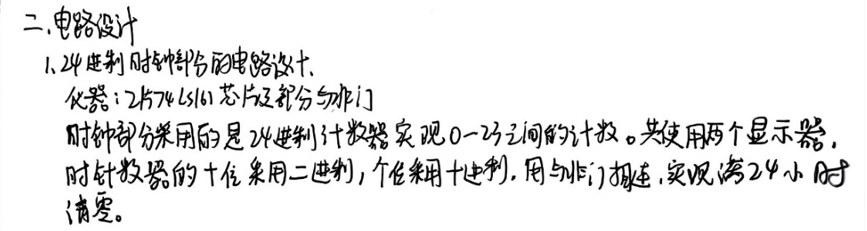 二、电路设计
1、24进制时钟部分的电路设计.
仪器：2片74LS161芯片及部分与非门
时钟部分采用的是24进制计数器实现0-23之间的计数。共使用两个显示器,
时计数器的十位采用二进制,个位采用十进制.用与非门相连,实现满24小时
清零。